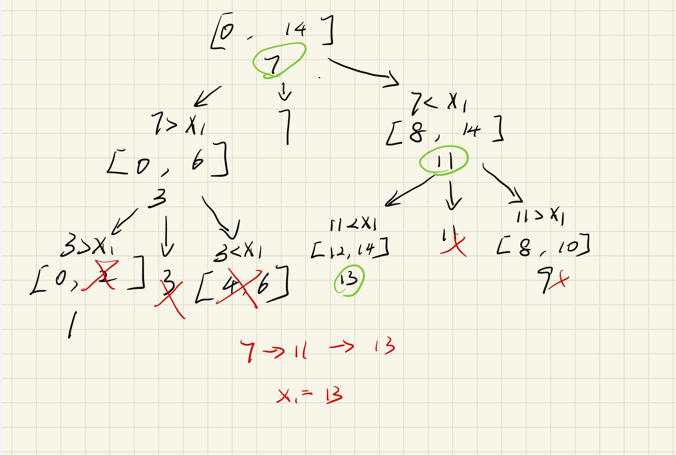 [0, 14]
7
7>x₁
7
7<x₁
[0, 6]
[8, 14]
3
11
3>x₁
3<x₁
11<x₁
11
11>x₁
[0, 2]
3
[4, 6]
[12, 14]
[8, 10]
1
13
9
7→11→13
x₁=13